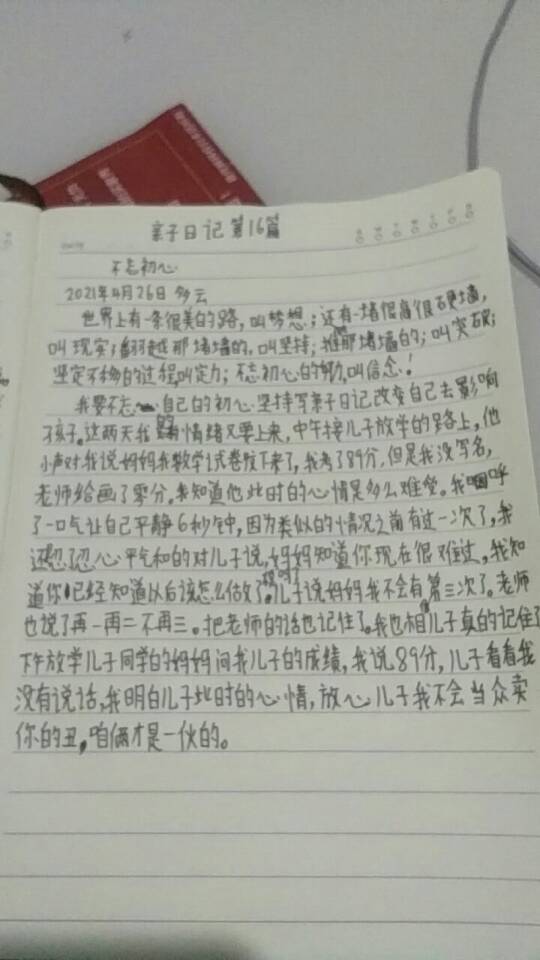 亲子日记第16篇
不忘初心
2021年4月26日 多云
世界上有一条很美的路,叫梦想;还有一堵很高很硬墙,
叫现实;翻越那堵墙的,叫坚持;推那堵墙的;叫突破;
坚定不移的过程叫定力;不忘初心的努力,叫信念!
我要不忘自己的初心坚持写亲子日记改变自己去影响
孩子。这两天我情绪又要上来,中午接儿子放学的路上,他
小声对我说妈妈我数学试卷发下来了,我考了89分,但是我没写名,
老师给画了零分。我知道他此时的心情是多么难受。我呼
了一口气让自己平静6秒钟,因为类似的情况之前有过一次了,我
还忍了忍心平气和的对儿子说,妈妈知道你现在很难过,我知
道你已经知道以后该怎么做了。儿子说妈妈我不会有第三次了。老师
也说了再一再二不再三。把老师的话也记住了。我也相信儿子真的记住了
下午放学儿子同学的妈妈问我儿子的成绩,我说89分,儿子看看我
没有说话,我明白儿子此时的心情,放心儿子我不会当众卖
你的丑,咱俩才是一伙的。